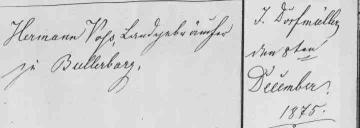 Hermann Voß, Landgebräucher
zu Bullerbarg.
J. Dorfmüller
den 8ten
December.
1875.